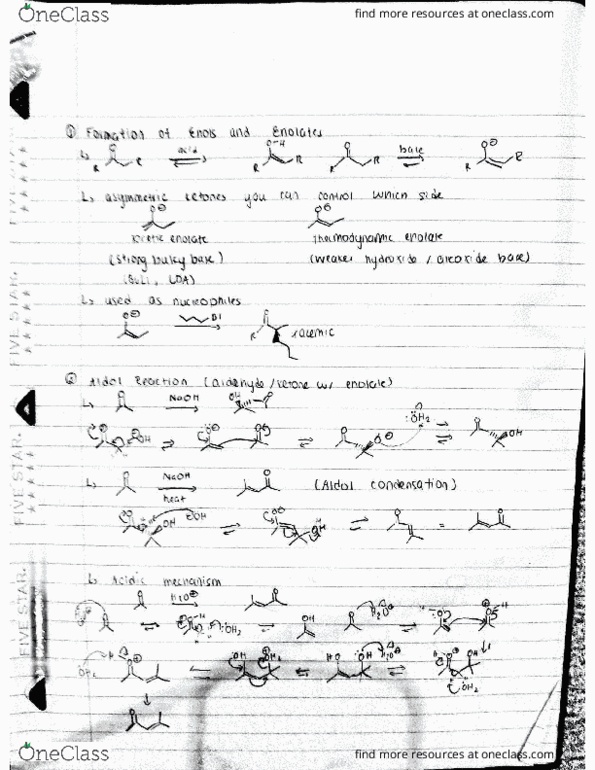 OneClass
find more resources at oneclass.com
① Formation of Enols and Enolates
acid
base
↳ asymmetric ketones you can control which side
kinetic enolate
thermodynamic enolate
(strong bulky base)
(weaker hydroxide / alkoxide base)
(BuLi, LDA)
↳ used as nucleophiles
Br
racemic
② Aldol Reaction (aldehyde/ketone w/ enolate)
NaOH
NaOH
heat
(Aldol condensation)
↳ Acidic mechanism
H₃O⊕
FIVE STAR.
FIVE STAR.
FIVE STAR.
OneClass
find more resources at oneclass.com